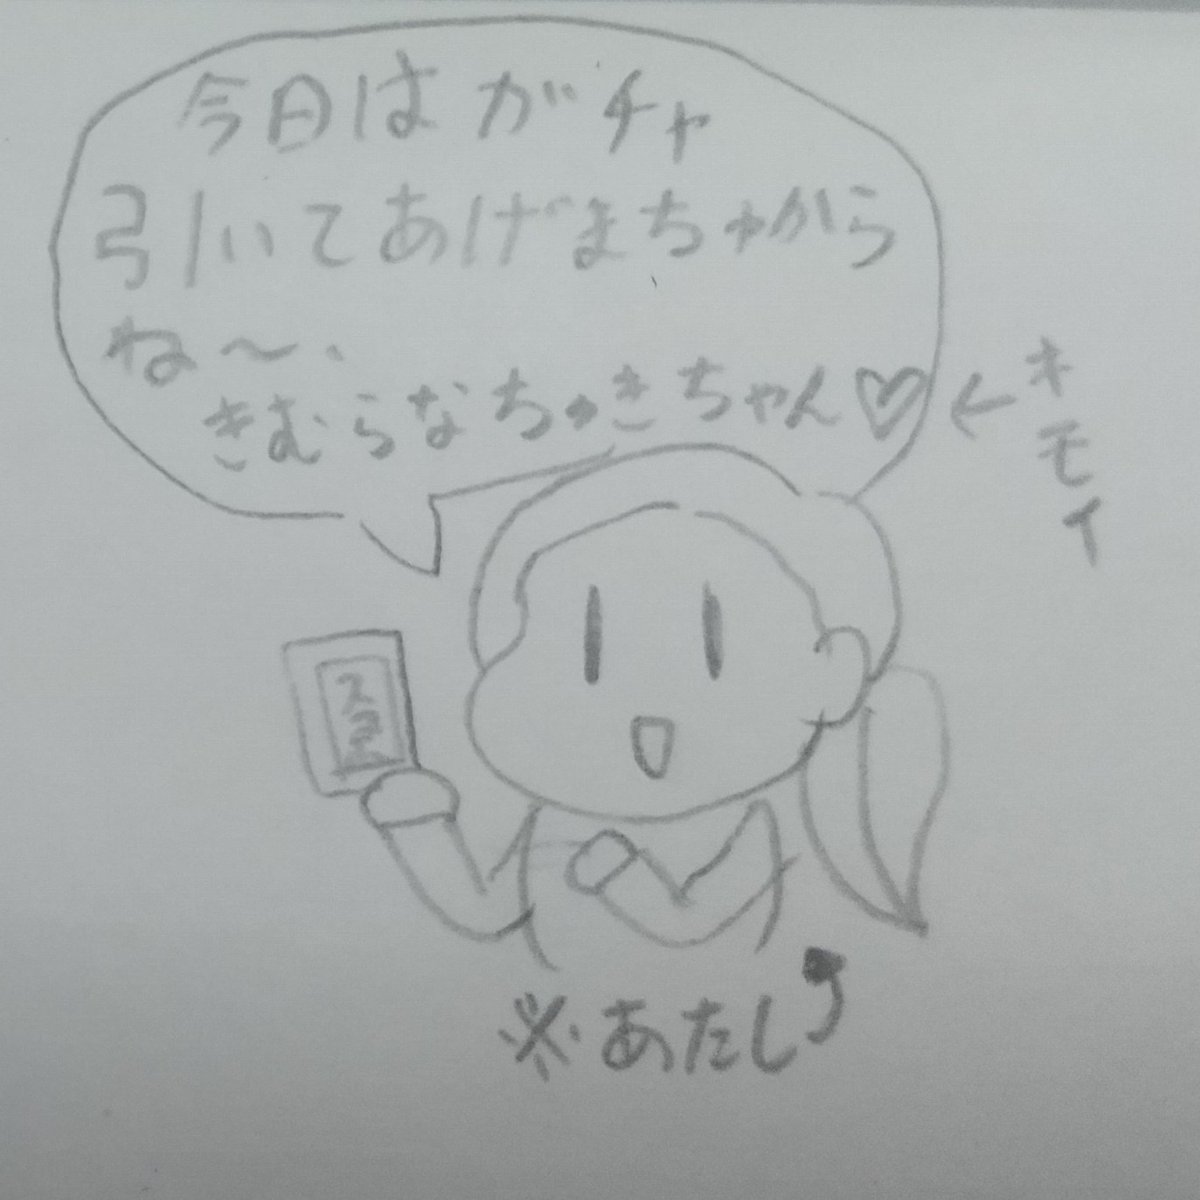 今日はガチャ
引いてあげまちゅから
ね〜、
きむらなちゅきちゃん♡
←キモイ
※あたし